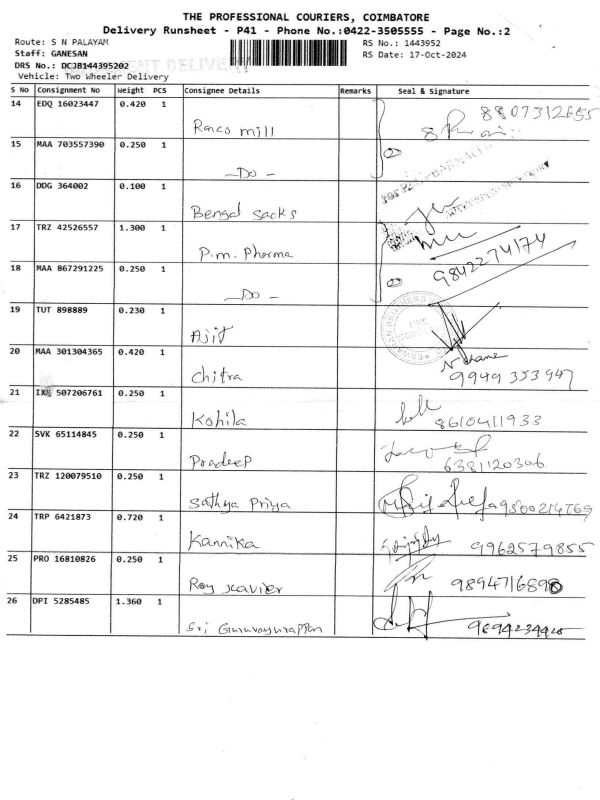 THE PROFESSIONAL COURIERS, COIMBATORE
Delivery Runsheet - P41 - Phone No.:0422-3505555 - Page No.:2
Route: S N PALAYAM
RS No.: 1443952
Staff: GANESAN
RS Date: 17-Oct-2024
DRS No.: DCJB144395202
Vehicle: Two Wheeler Delivery
S No Consignment No Weight PCS Consignee Details Remarks Seal & Signature
14 EDQ 16023447 0.420 1 8807312655
Ranco mill
15 MAA 703557390 0.250 1
—Do—
16 DDG 364002 0.100 1
Bengal Sacks
17 TRZ 42526557 1.300 1
P.m. Pharma 9842274174
18 MAA 867291225 0.250 1
—Do—
19 TUT 898889 0.230 1
Ajit
20 MAA 301304365 0.420 1
Chitra 9949353947
21 507206761 0.250 1
Kohila 8610411933
22 SVK 65114845 0.250 1
Pradeep 6381120306
23 TRZ 120079510 0.250 1
Sathya Priya
24 TRP 6421873 0.720 1
Kannika 9962579855
25 PRO 16810826 0.250 1
Roy Xavier
26 DPI 5285485 1.360 1
Sri Guruvayurappan